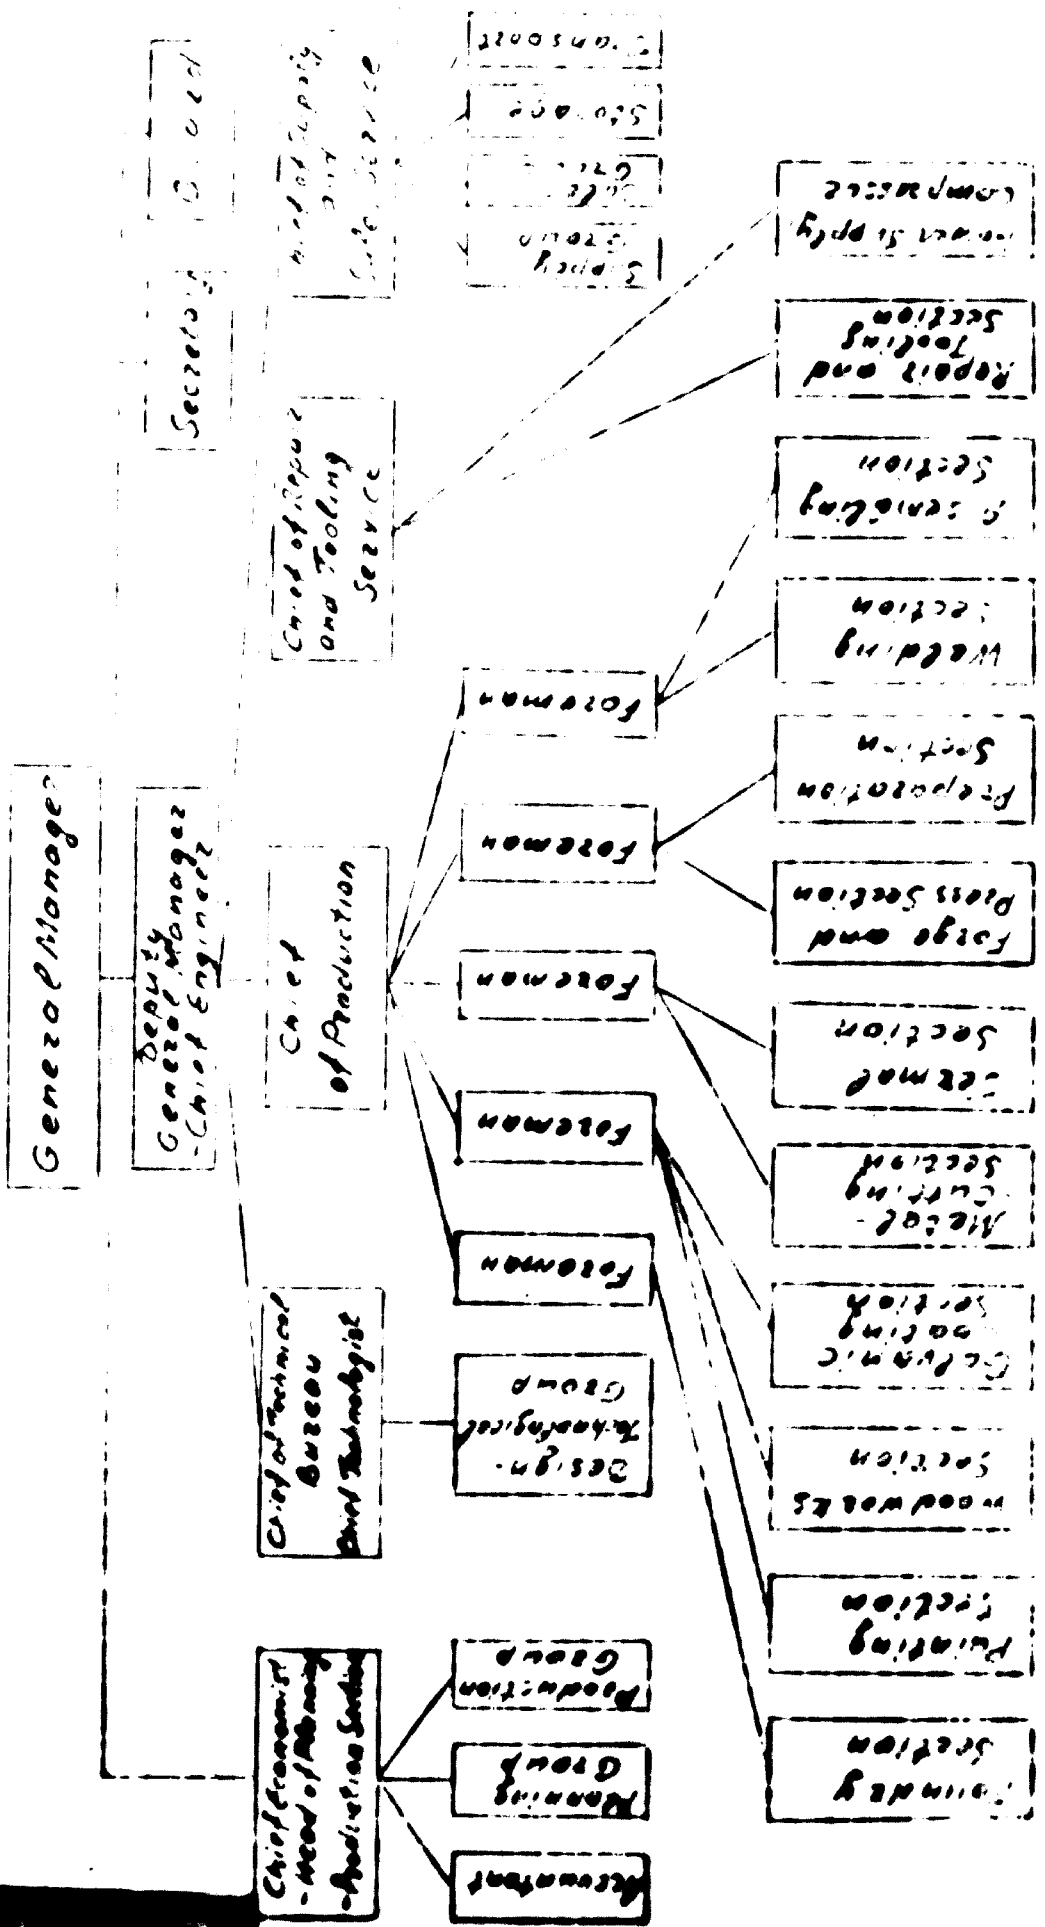 General Manager
Deputy
General Manager
- Chief Engineer
Secretary
Chief Economist
- Head of Planning
- Production Section
Chief of Technical
Bureau
Chief Technologist
Chief
of Production
Chief of Repair
and Tooling
Service
of Supply
and
Service
Accountant
Planning
Group
Production
Group
Design-
Technological
Group
Foreman
Foreman
Foreman
Foreman
Foreman
Supply
Group
Storage
Transport
Foundry
Section
Painting
Section
Woodworks
Section
Galvanic
Coating
Section
Metal-
Cutting
Section
Termal
Section
Forge and
Press Section
Preparation
Section
Welding
Section
Assembling
Section
Repair and
Tooling
Section
Power Supply,
Compressor